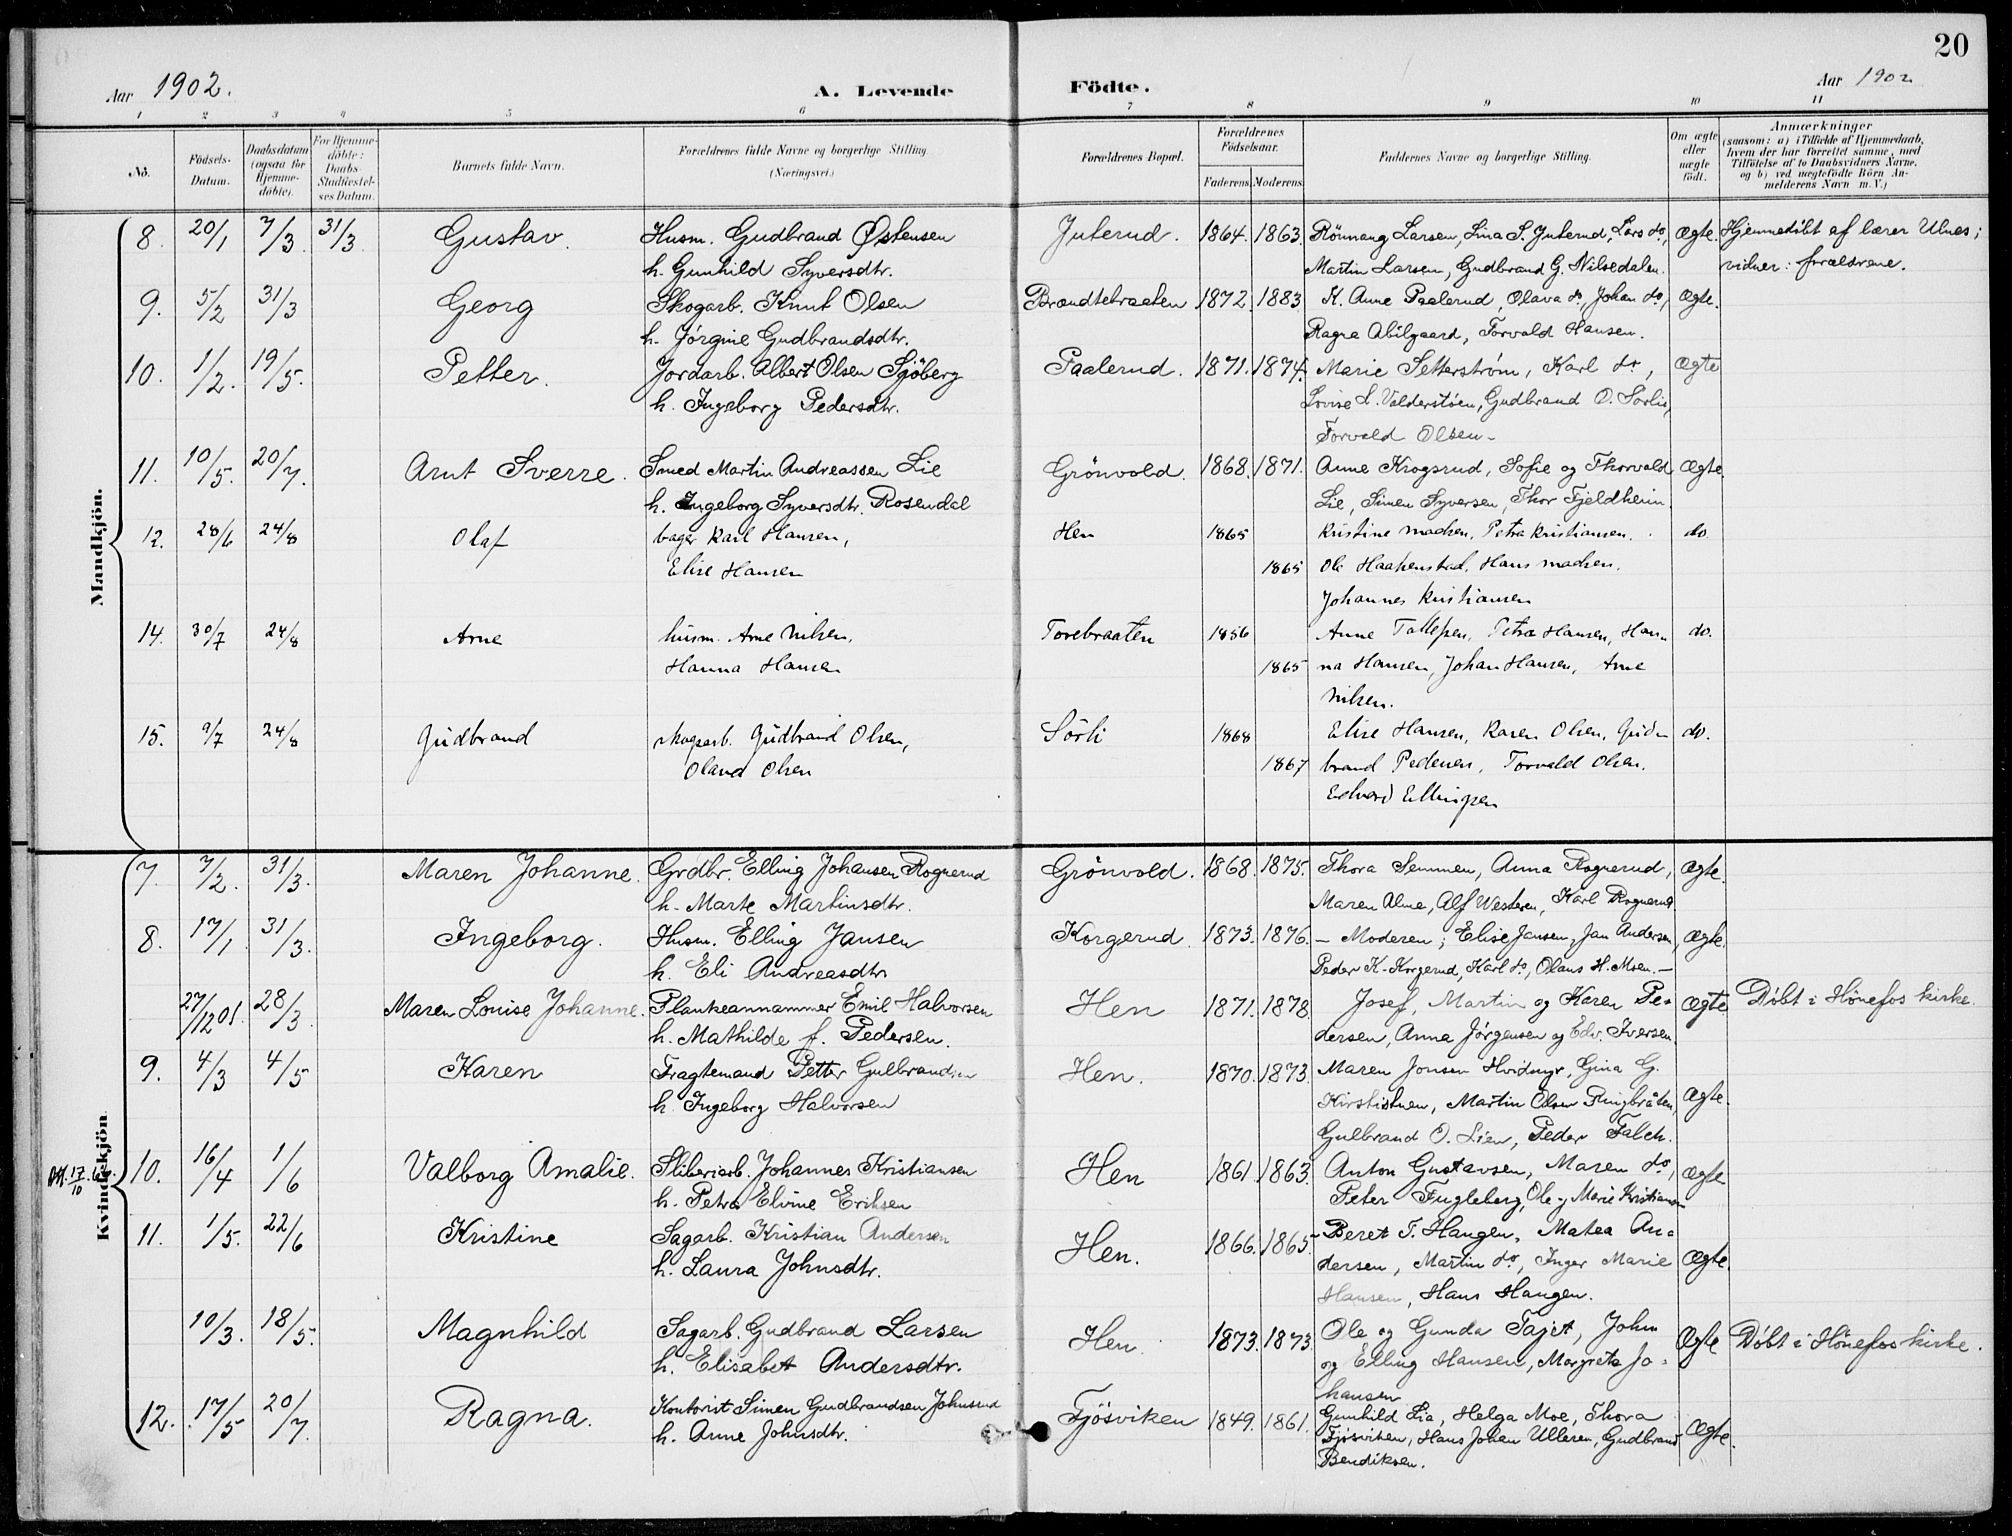 20
Aar 1902. A. Levende Födte. Aar 1902
1 2 3 4 5 6 7 8 9 10 11
No. Födsels-Datum. Daabsdatum (ogsaa for Hjemme-döbte). For Hjemme-döbte: Daabs-Stadfæstel-ses Datum. Barnets fulde Navn. Forældrenes fulde Navne og borgerlige Stilling (Næringsvei.) Forældrenes Bopæl. Forældrenes Födselsaar. Faderens. Moderens. Faddernes Navne og borgerlige Stilling. Om ægte eller uægte födt. Anmærkninger (saasom: a) i Tilfælde af Hjemmedaab, hvem der har forrettet samme, med Tilföielse af to Daabsvidners Navne. og b) ved uægtefödte Börn An-melderens Navn m. V.)
Mandkjön.
8. 20/1 7/3 31/3 Gustav. Husm. Gudbrand Østensen Juterud. 1864. 1863. Rönnaug Larsen, Lina S. Juterud, Lars do, Ægte. Hjemmedöbt af lærer Ulnes;
h. Gunhild Syversdtr. Martin Larsen, Gudbrand G. Nilsedalen. vidner: forældrene.
9. 5/2 31/3 Georg Skogarb. Knut Olsen Brændtebraaten 1872. 1883 K. Anne Paalerud, Olava do, Johan do, Ægte.
h. Jörgine Gudbrandsdtr. Ragna Abilgaard, Torvald Hansen.
10. 1/2. 19/5. Petter. Jordarb. Albert Olsen Sjöberg Paalerud. 1871. 1874. Marie Setterström, Karl do, Ægte
h. Ingeborg Pedersdtr. Lovise L. Valderstöen, Gudbrand O. Sorlie,
Torvald Olsen.
11. 10/5. 20/7. Arnt Sverre. Smed Martin Andreassen Lie Grönvold. 1868. 1871. Anne Krogsrud, Sofie og Thorvald Ægte.
h. Ingeborg Syversdtr. Rosendal Lie, Simen Syversen, Thor Fjeldheim.
12. 28/6 24/8 Olaf bager Karl Hansen, Hen 1865 Kristine Madsen, Petra Kristiansen. do
Elise Hansen 1865 Ole Haakenstad, Hans Madsen.
Johannes Kristiansen
14. 30/7 24/8 Arne husm. Arne Nilsen, Tovebraaten 1856 Anne Tollefsen, Petra Hansen, Han- do.
Hanna Hansen 1865 na Hansen, Johan Hansen, Arne
Nilsen.
15. 9/7 24/8 Gudbrand skogsarb. Gudbrand Olsen, Sörli 1868 Elise Hansen, Karen Olsen, Gud- do.
Olava Olsen 1867 brand Pedersen, Torvald Olsen.
Edvard Ellingsen
Kvindekjön.
7. 7/2. 31/3. Maren Johanne. Grdbr. Elling Johansen Rognerud Grönvold. 1868. 1875. Thora Semmen, Anna Rognerud, Ægte.
h. Marte Martinsdtr. Maren Alme, Alf Westeren, Karl Rognerud.
8. 17/1 31/3. Ingeborg. Husm. Elling Jansen Korgerud. 1873. 1876. - Moderen; Elise Jansen, Jan Andersen, Ægte.
h. Eli Andreasdtr Peder K. Korgerud, Karl do, Olaus H. Moen. -
27/12 01. 28/3. Maren Louise Johanne. Plankeannammer Emil Halvorsen Hen 1871. 1878. Josef, Martin og Karen Pe- Ægte Döbt i Hönefos kirke.
h. Mathilde f. Pedersen. dersen, Anna Jörgensen og Edv. Iversen.
9. 4/3 4/5 Karen Fragtemand Petter Gulbrandsen Hen. 1870. 1873. Maren Jonsen Hvidmyr, Gina G.
h. Ingeborg Halvorsen Kirstistuen, Martin Olsen Ringbråten, Ægte.
Gulbrand O. Lien, Peder Falch.
10. 16/4 1/6 Valborg Amalie. Sliberiarb. Johannes Kristiansen Hen 1861. 1863. Anton Gustavsen, Maren do, Ægte
h. Petra Elvine Eriksen Peter Fugleberg, Ole og Marie Kristiansen
11. 1/5. 22/6 Kristine Sagarb. Kristian Andersen Hen. 1866. 1865. - Beret T. Haugen, Matea An-
h. Laura Johnsdtr. dersen, Martin do, Inger Marie Ægte.
Hansen, Hans Haugen.
10/3. 18/5. Magnhild Sagarb. Gudbrand Larsen Hen. 1873. 1873. Ole og Gunda Tajet, John Ægte Döbt i Hönefos kirke.
h. Elisabet Andersdtr. og Elling Hansen, Margrete Jo-
hansen
12. 17/5 20/7. Ragna. Kontorist Simen Gudbrandsen Johnsrud Fjösviken 1849. 1861. Gunhild Lia, Helga Moe, Thora
h. Anne Johnsdtr. Fjösviken, Hans Johan Ulleren, Gudbrand Ægte.
Bendiksen.